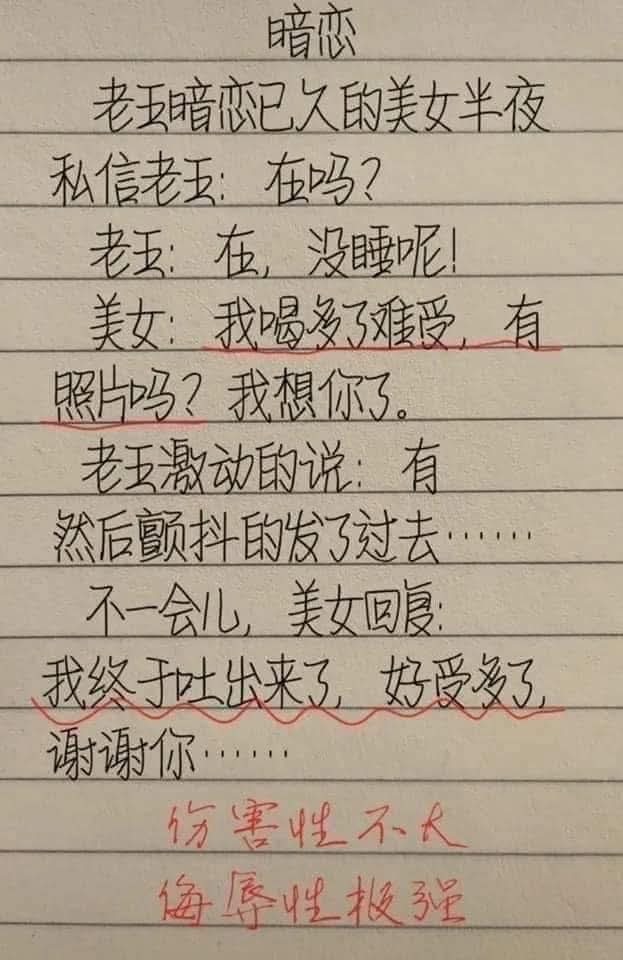 暗恋
老王暗恋已久的美女半夜
私信老王：在吗？
老王：在，没睡呢！
美女：我喝多了难受，有
照片吗？我想你了。
老王激动的说：有
然后颤抖的发了过去……
不一会儿，美女回复：
我终于吐出来了，好受多了，
谢谢你……
伤害性不大
侮辱性极强